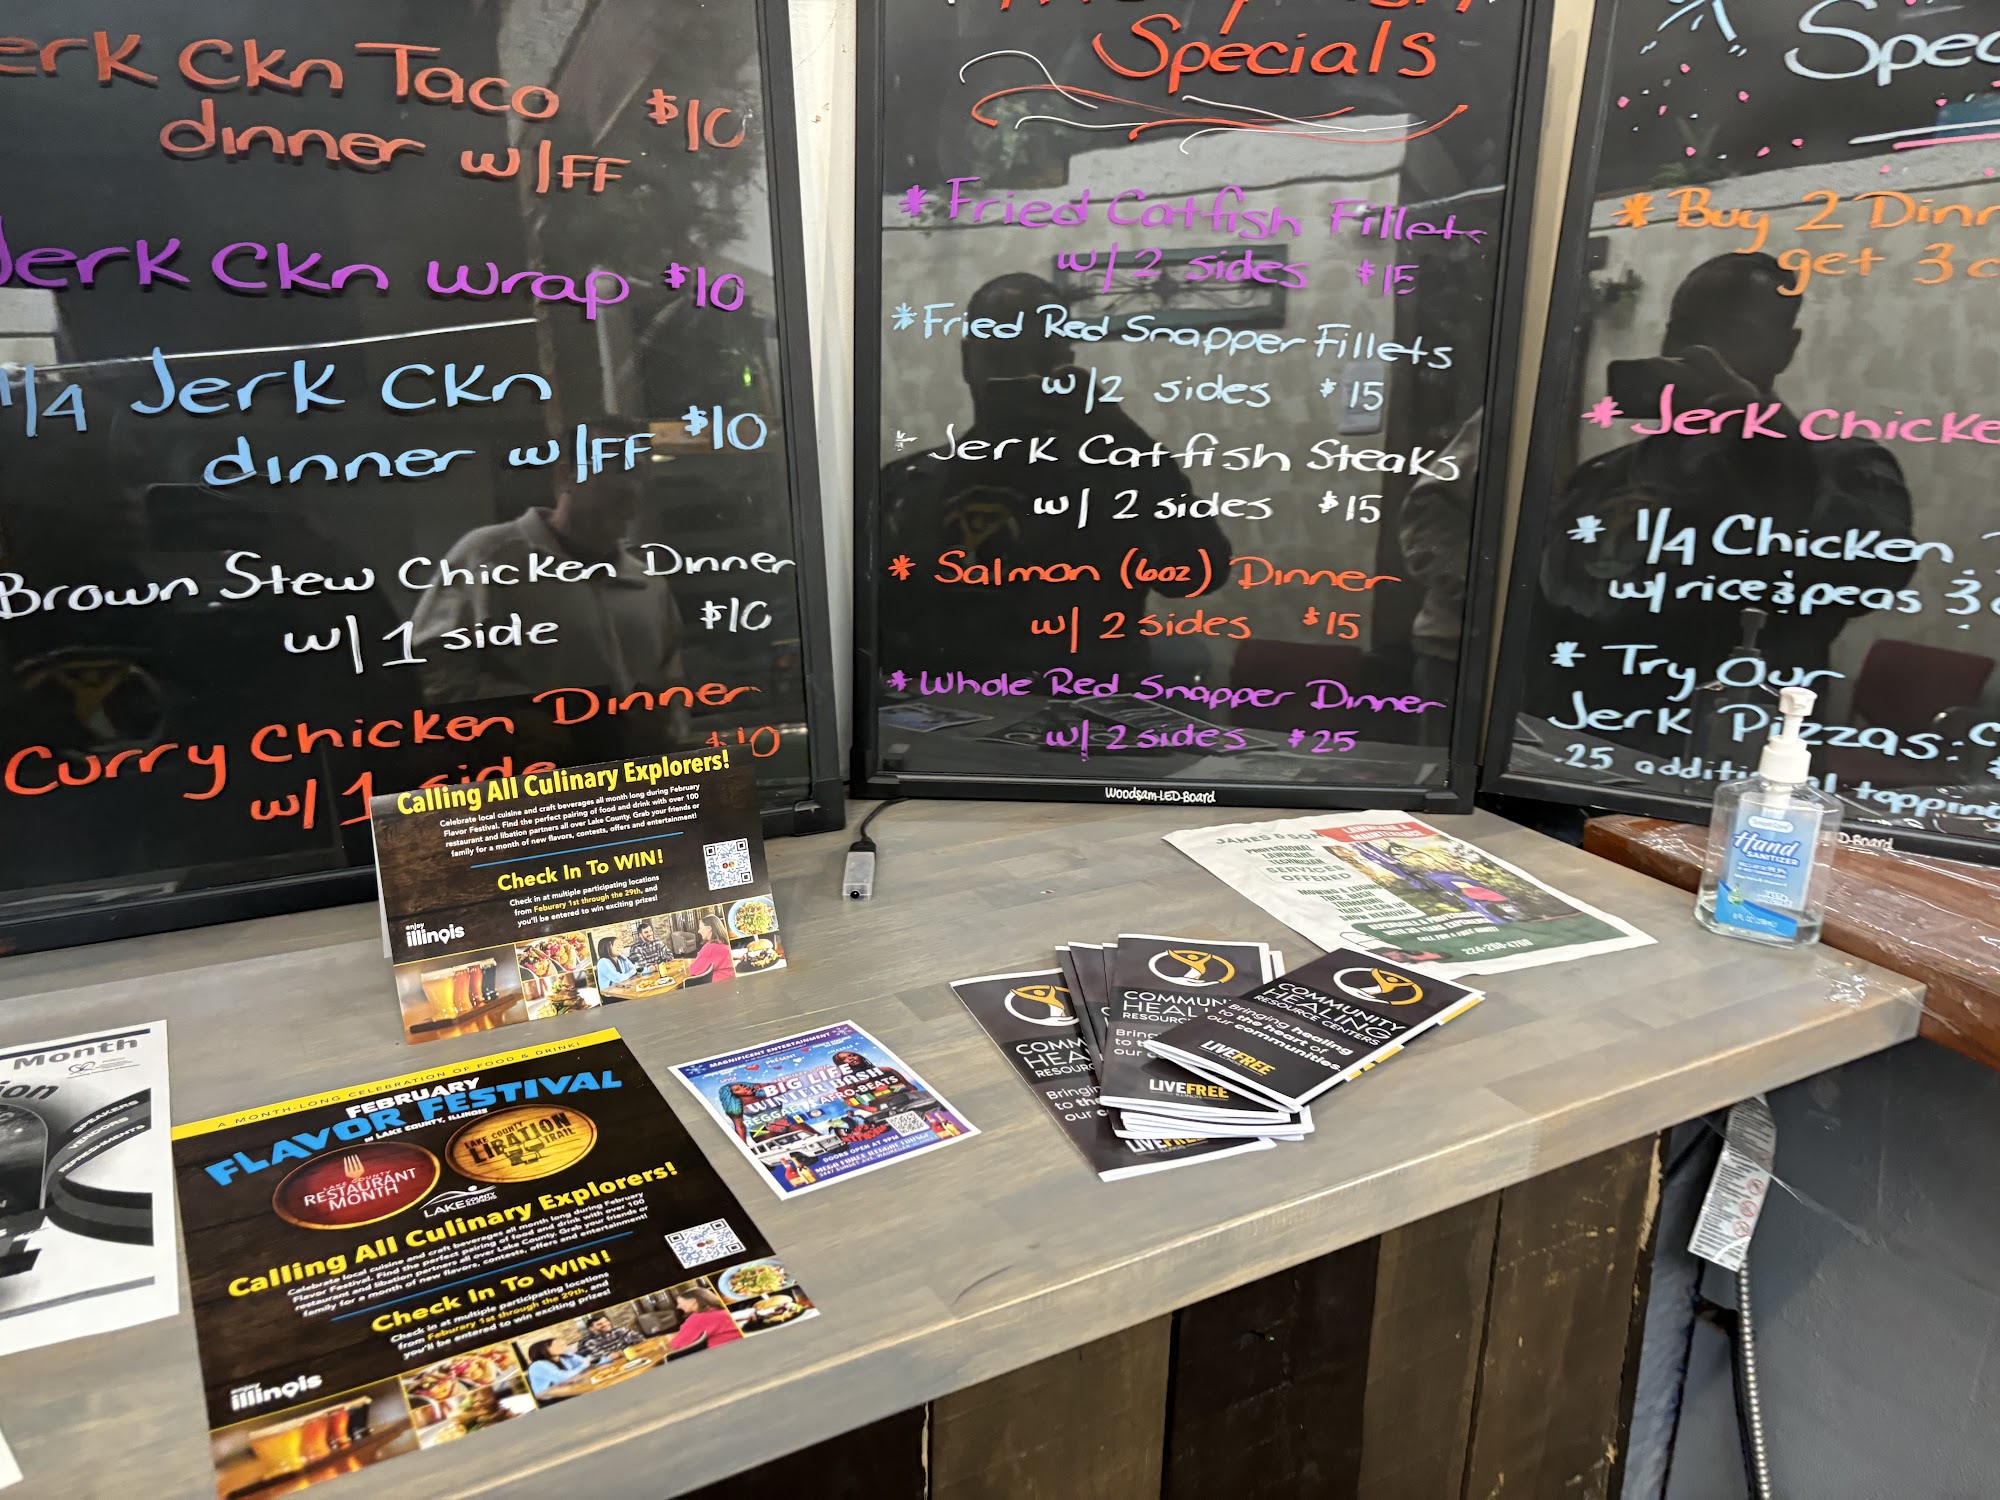 erk Ckn Taco
dinner w/FF $10
Jerk Ckn Wrap $10
1/4 Jerk Ckn
dinner w/FF $10
Brown Stew Chicken Dinner
w/ 1 side $10
Curry Chicken Dinner
w/ 1 side $10
Specials
* Fried Catfish Fillets
w/ 2 sides $15
* Fried Red Snapper Fillets
w/2 sides $15
* Jerk Catfish Steaks
w/ 2 sides $15
* Salmon (6oz) Dinner
w/ 2 sides $15
* Whole Red Snapper Dinner
w/ 2 sides $25
Woodsam-LED-Board
Spec
* Buy 2 Dinn
get 3
* Jerk Chicke
* 1/4 Chicken
w/ rice & peas 3
* Try Our
Jerk Pizzas:
.25 additional topping
D-Board
Calling All Culinary Explorers!
Celebrate local cuisine and craft beverages all month long during February
Flavor Festival. Find the perfect pairing of food and drink with over 100
restaurant and libation partners all over Lake County. Grab your friends or
family for a month of new flavors, contests, offers and entertainment!
Check In To WIN!
Check in at multiple participating locations
from Feburary 1st through the 29th, and
you'll be entered to win exciting prizes!
enjoy
illinois
Hand
SANITIZER
JAMES & SON
PROFESSIONAL
LAWNCARE
TECHNICIAN
SERVICES
OFFERED
224-280-4760
COMMUNITY
HEALING
RESOURCE CENTERS
Bringing healing
to the heart of
our communities.
LIVEFREE
COMMUN
HEAL
RESOURC
Bring
to t
our c
LIVEFREE
COMM
HEA
RESOURC
Bringi
to the
our c
LIVEFREE
MAGNIFICENT ENTERTAINMENT
PRESENT
BIG LIFE
WINTER BASH
REGGAE AFRO-BEATS
DOORS OPEN AT 9PM
A MONTH-LONG CELEBRATION OF FOOD & DRINK!
FEBRUARY
FLAVOR FESTIVAL
IN LAKE COUNTY, ILLINOIS
LAKE COUNTY
RESTAURANT
MONTH
LAKE COUNTY
LIBATION
TRAIL
LAKE COUNTY
Calling All Culinary Explorers!
Celebrate local cuisine and craft beverages all month long during February
Flavor Festival. Find the perfect pairing of food and drink with over 100
restaurant and libation partners all over Lake County. Grab your friends or
family for a month of new flavors, contests, offers and entertainment!
Check In To WIN!
Check in at multiple participating locations
from Feburary 1st through the 29th, and
you'll be entered to win exciting prizes!
enjoy
illinois
Month
ion
SPEAKERS
VENDORS
REFRESHMENTS